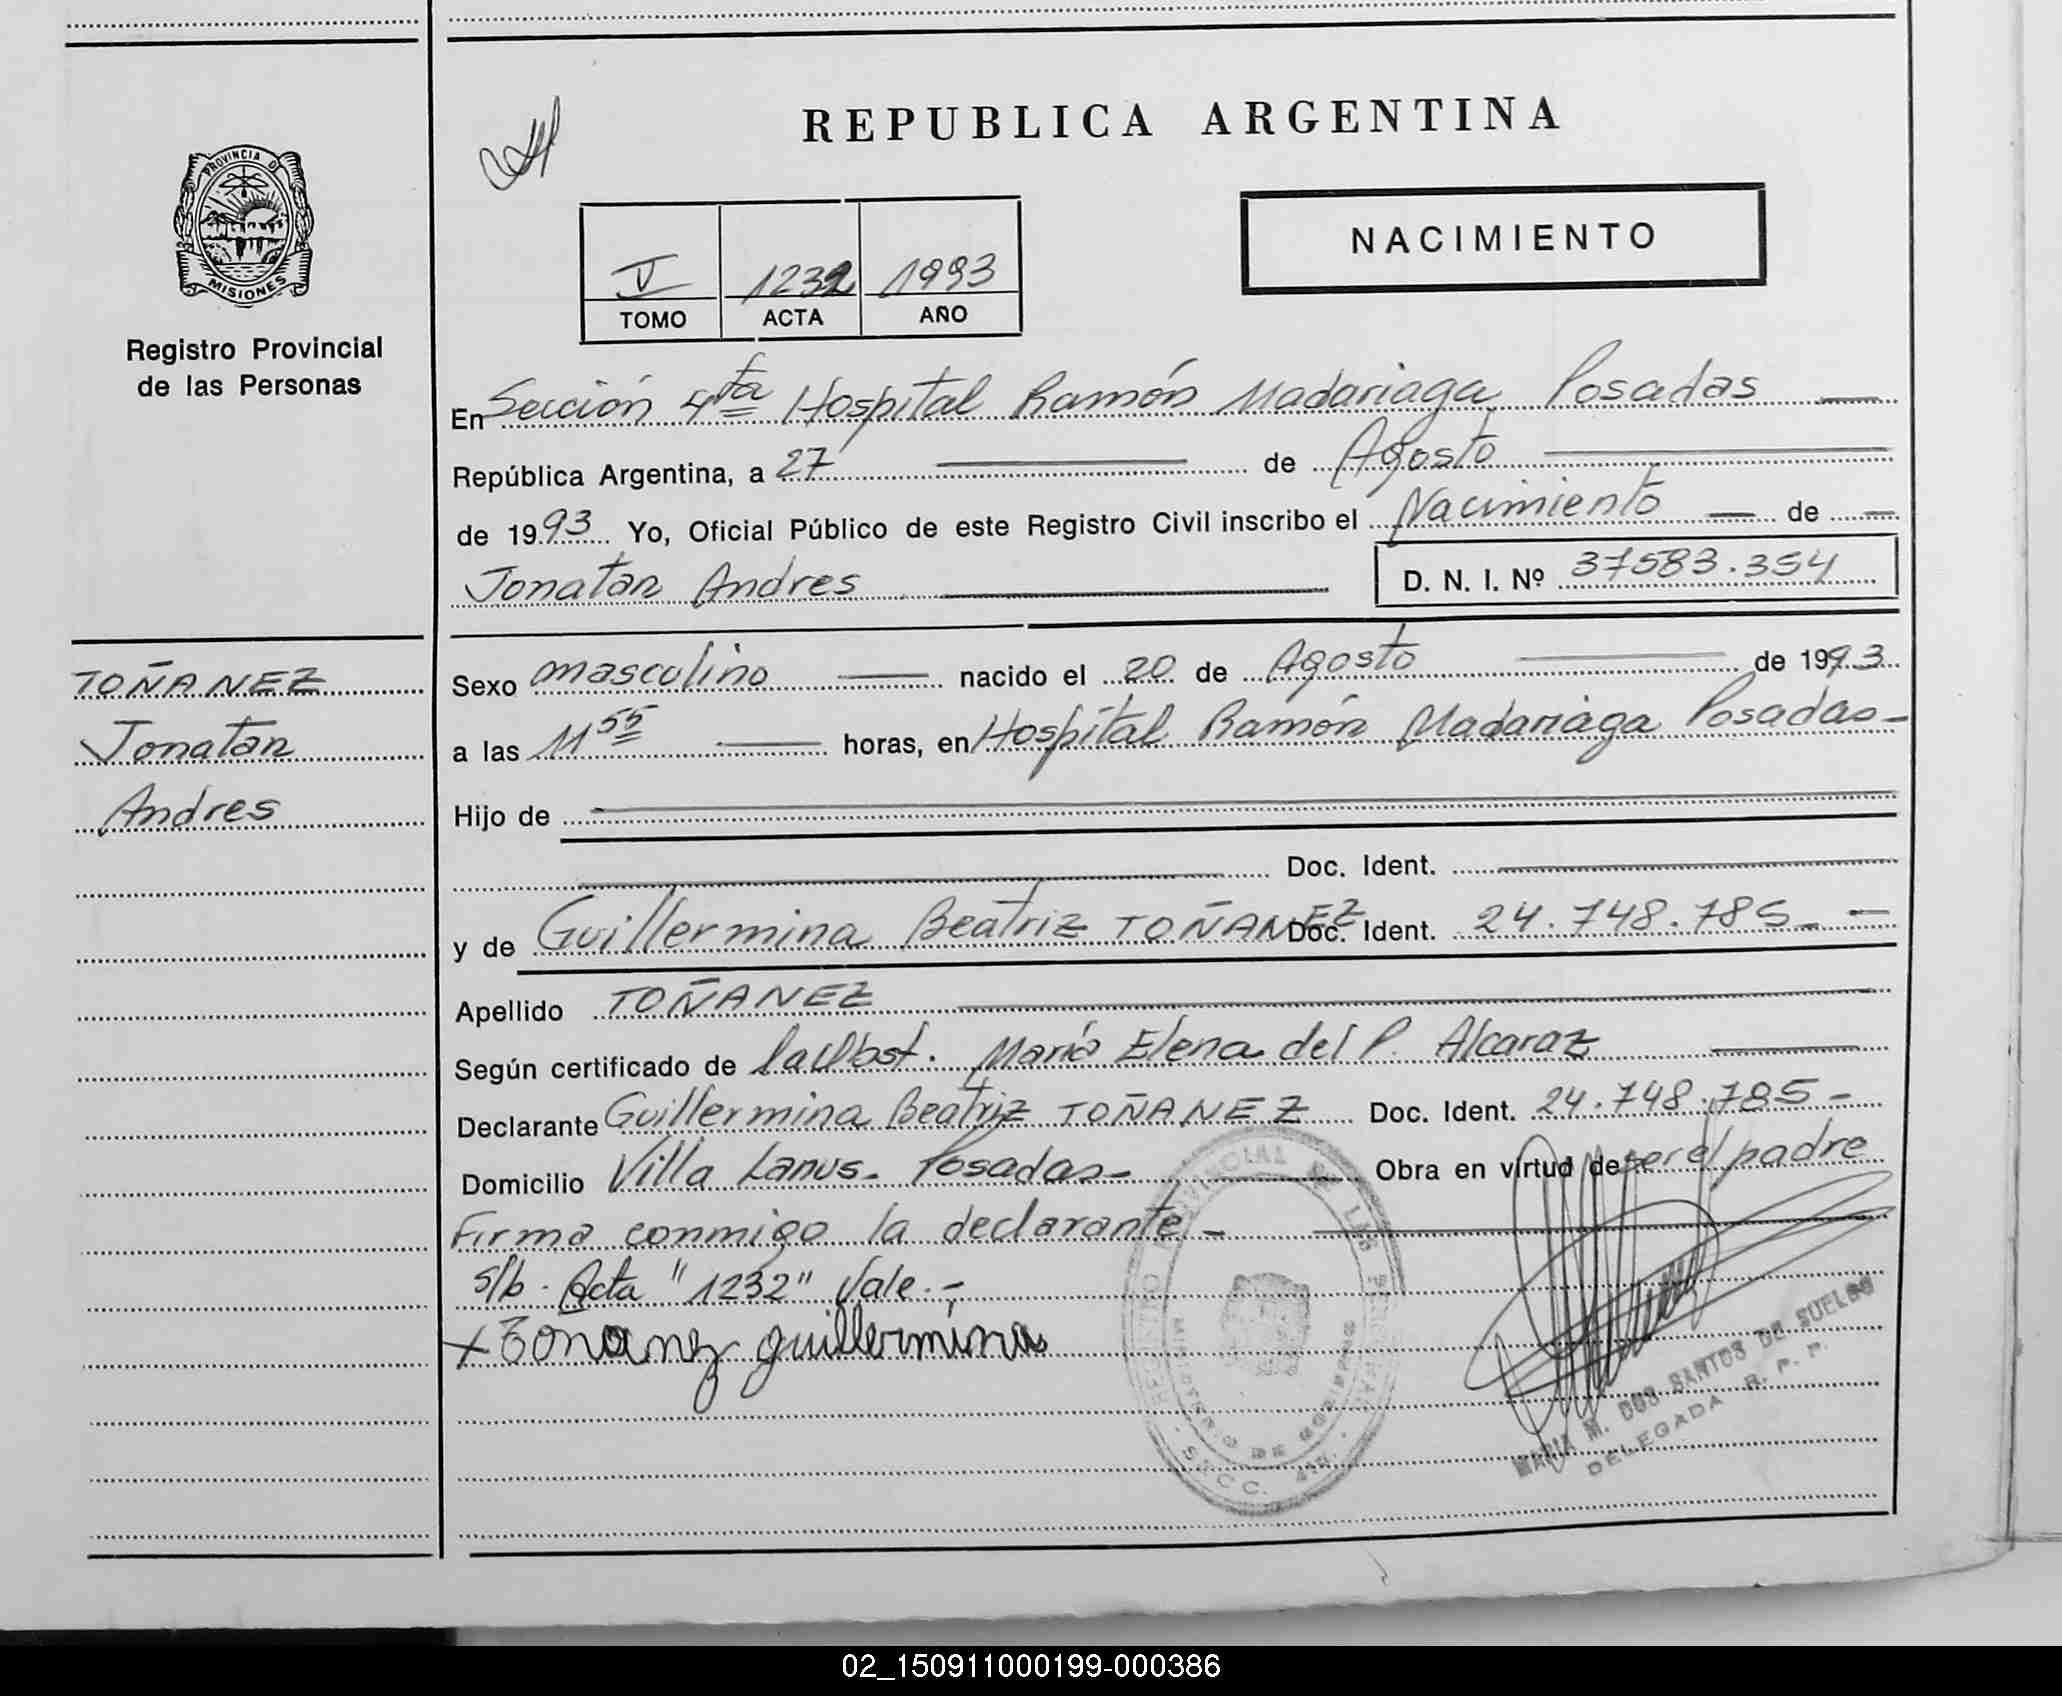 REPUBLICA ARGENTINA
PROVINCIA DE
MISIONES
Registro Provincial
de las Personas
V 1232 1993
TOMO ACTA AÑO
NACIMIENTO
En Sección 4ta Hospital Ramón Madariaga Posadas
República Argentina, a 27 de Agosto
de 1993 Yo, Oficial Público de este Registro Civil inscribo el Nacimiento de
Jonatan Andres D. N. I. Nº 37583.354
TOÑANEZ
Jonatan
Andres
Sexo masculino nacido el 20 de Agosto de 1993
a las 11 55 horas, en Hospital Ramón Madariaga Posadas
Hijo de
Doc. Ident.
y de Guillermina Beatriz TOÑANEZ Doc. Ident. 24.748.785
Apellido TOÑANEZ
Según certificado de la Obst. María Elena del P. Alcaraz
Declarante Guillermina Beatriz TOÑANEZ Doc. Ident. 24.748.785
Domicilio Villa Lanus - Posadas - Obra en virtud de ser el padre
Firma conmigo la declarante -
s/b. Acta "1232" Vale.-
x Toñanez guillermina
REGISTRO PROVINCIAL DE LAS PERSONAS
MINISTERIO DE GOBIERNO
MARIA M. DOS SANTOS DE SUELDO
DELEGADA R. P. P.
02_150911000199-000386